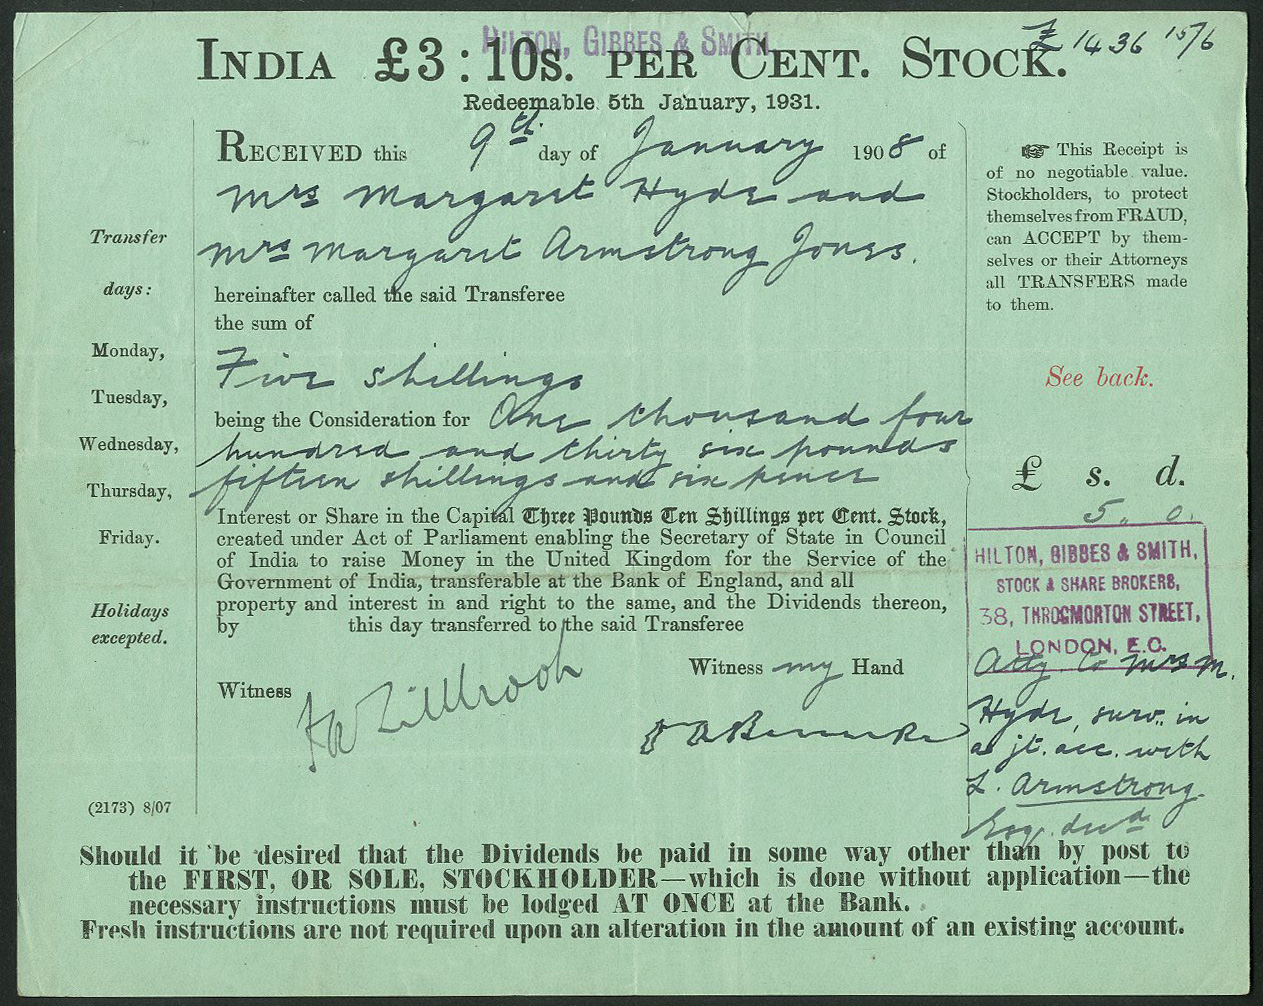 HILTON, GIBBES & SMITH
£ 1436 15/6
INDIA £3:10s. PER CENT. STOCK.
Redeemable 5th January, 1931.
RECEIVED this 9th day of January 1908 of
Mrs Margaret Hyde and
Mrs Margaret Armstrong Jones.
hereinafter called the said Transferee
the sum of
Five shillings
being the Consideration for One thousand four
hundred and thirty six pounds
fifteen shillings and six pence
Interest or Share in the Capital Three Pounds Ten Shillings per Cent. Stock,
created under Act of Parliament enabling the Secretary of State in Council
of India to raise Money in the United Kingdom for the Service of the
Government of India, transferable at the Bank of England, and all
property and interest in and right to the same, and the Dividends thereon,
by this day transferred to the said Transferee
Witness my Hand
Witness
Transfer
days:
Monday,
Tuesday,
Wednesday,
Thursday,
Friday.
Holidays
excepted.
(2173) 8/07
☞ This Receipt is
of no negotiable value.
Stockholders, to protect
themselves from FRAUD,
can ACCEPT by them-
selves or their Attorneys
all TRANSFERS made
to them.
See back.
£ s. d.
5 " 0.
HILTON, GIBBES & SMITH,
STOCK & SHARE BROKERS,
38, THROGMORTON STREET,
LONDON, E.C.
Atty to Mrs M.
Hyde, surv. in
a jt. acc. with
L. Armstrong
Esq. decd
Should it be desired that the Dividends be paid in some way other than by post to
the FIRST, OR SOLE, STOCKHOLDER—which is done without application—the
necessary instructions must be lodged AT ONCE at the Bank.
Fresh instructions are not required upon an alteration in the amount of an existing account.